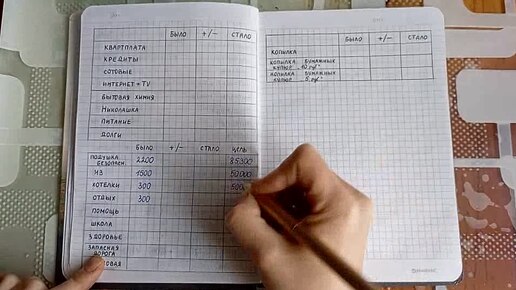 БЫЛО +/- СТАЛО
КВАРТПЛАТА
КРЕДИТЫ
СОТОВЫЕ
ИНТЕРНЕТ + TV
БЫТОВАЯ ХИМИЯ
НИКОЛАШКА
ПИТАНИЕ
ДОЛГИ
БЫЛО +/- СТАЛО ЦЕЛЬ
ПОДУШКА БЕЗОПАСН. 2200 85300
НЗ 1500 50000
ХОТЕЛКИ 300
ОТДЫХ 300
ПОМОЩЬ
ШКОЛА
ЗДОРОВЬЕ
ЗАПАСНАЯ
ДОРОГА
БЫЛО +/- СТАЛО
КОПИЛКА
КОПИЛКА БУМАЖНЫХ
КУПЮР 10 РУБ
КОПИЛКА БУМАЖНЫХ
КУПЮР 5 РУБ